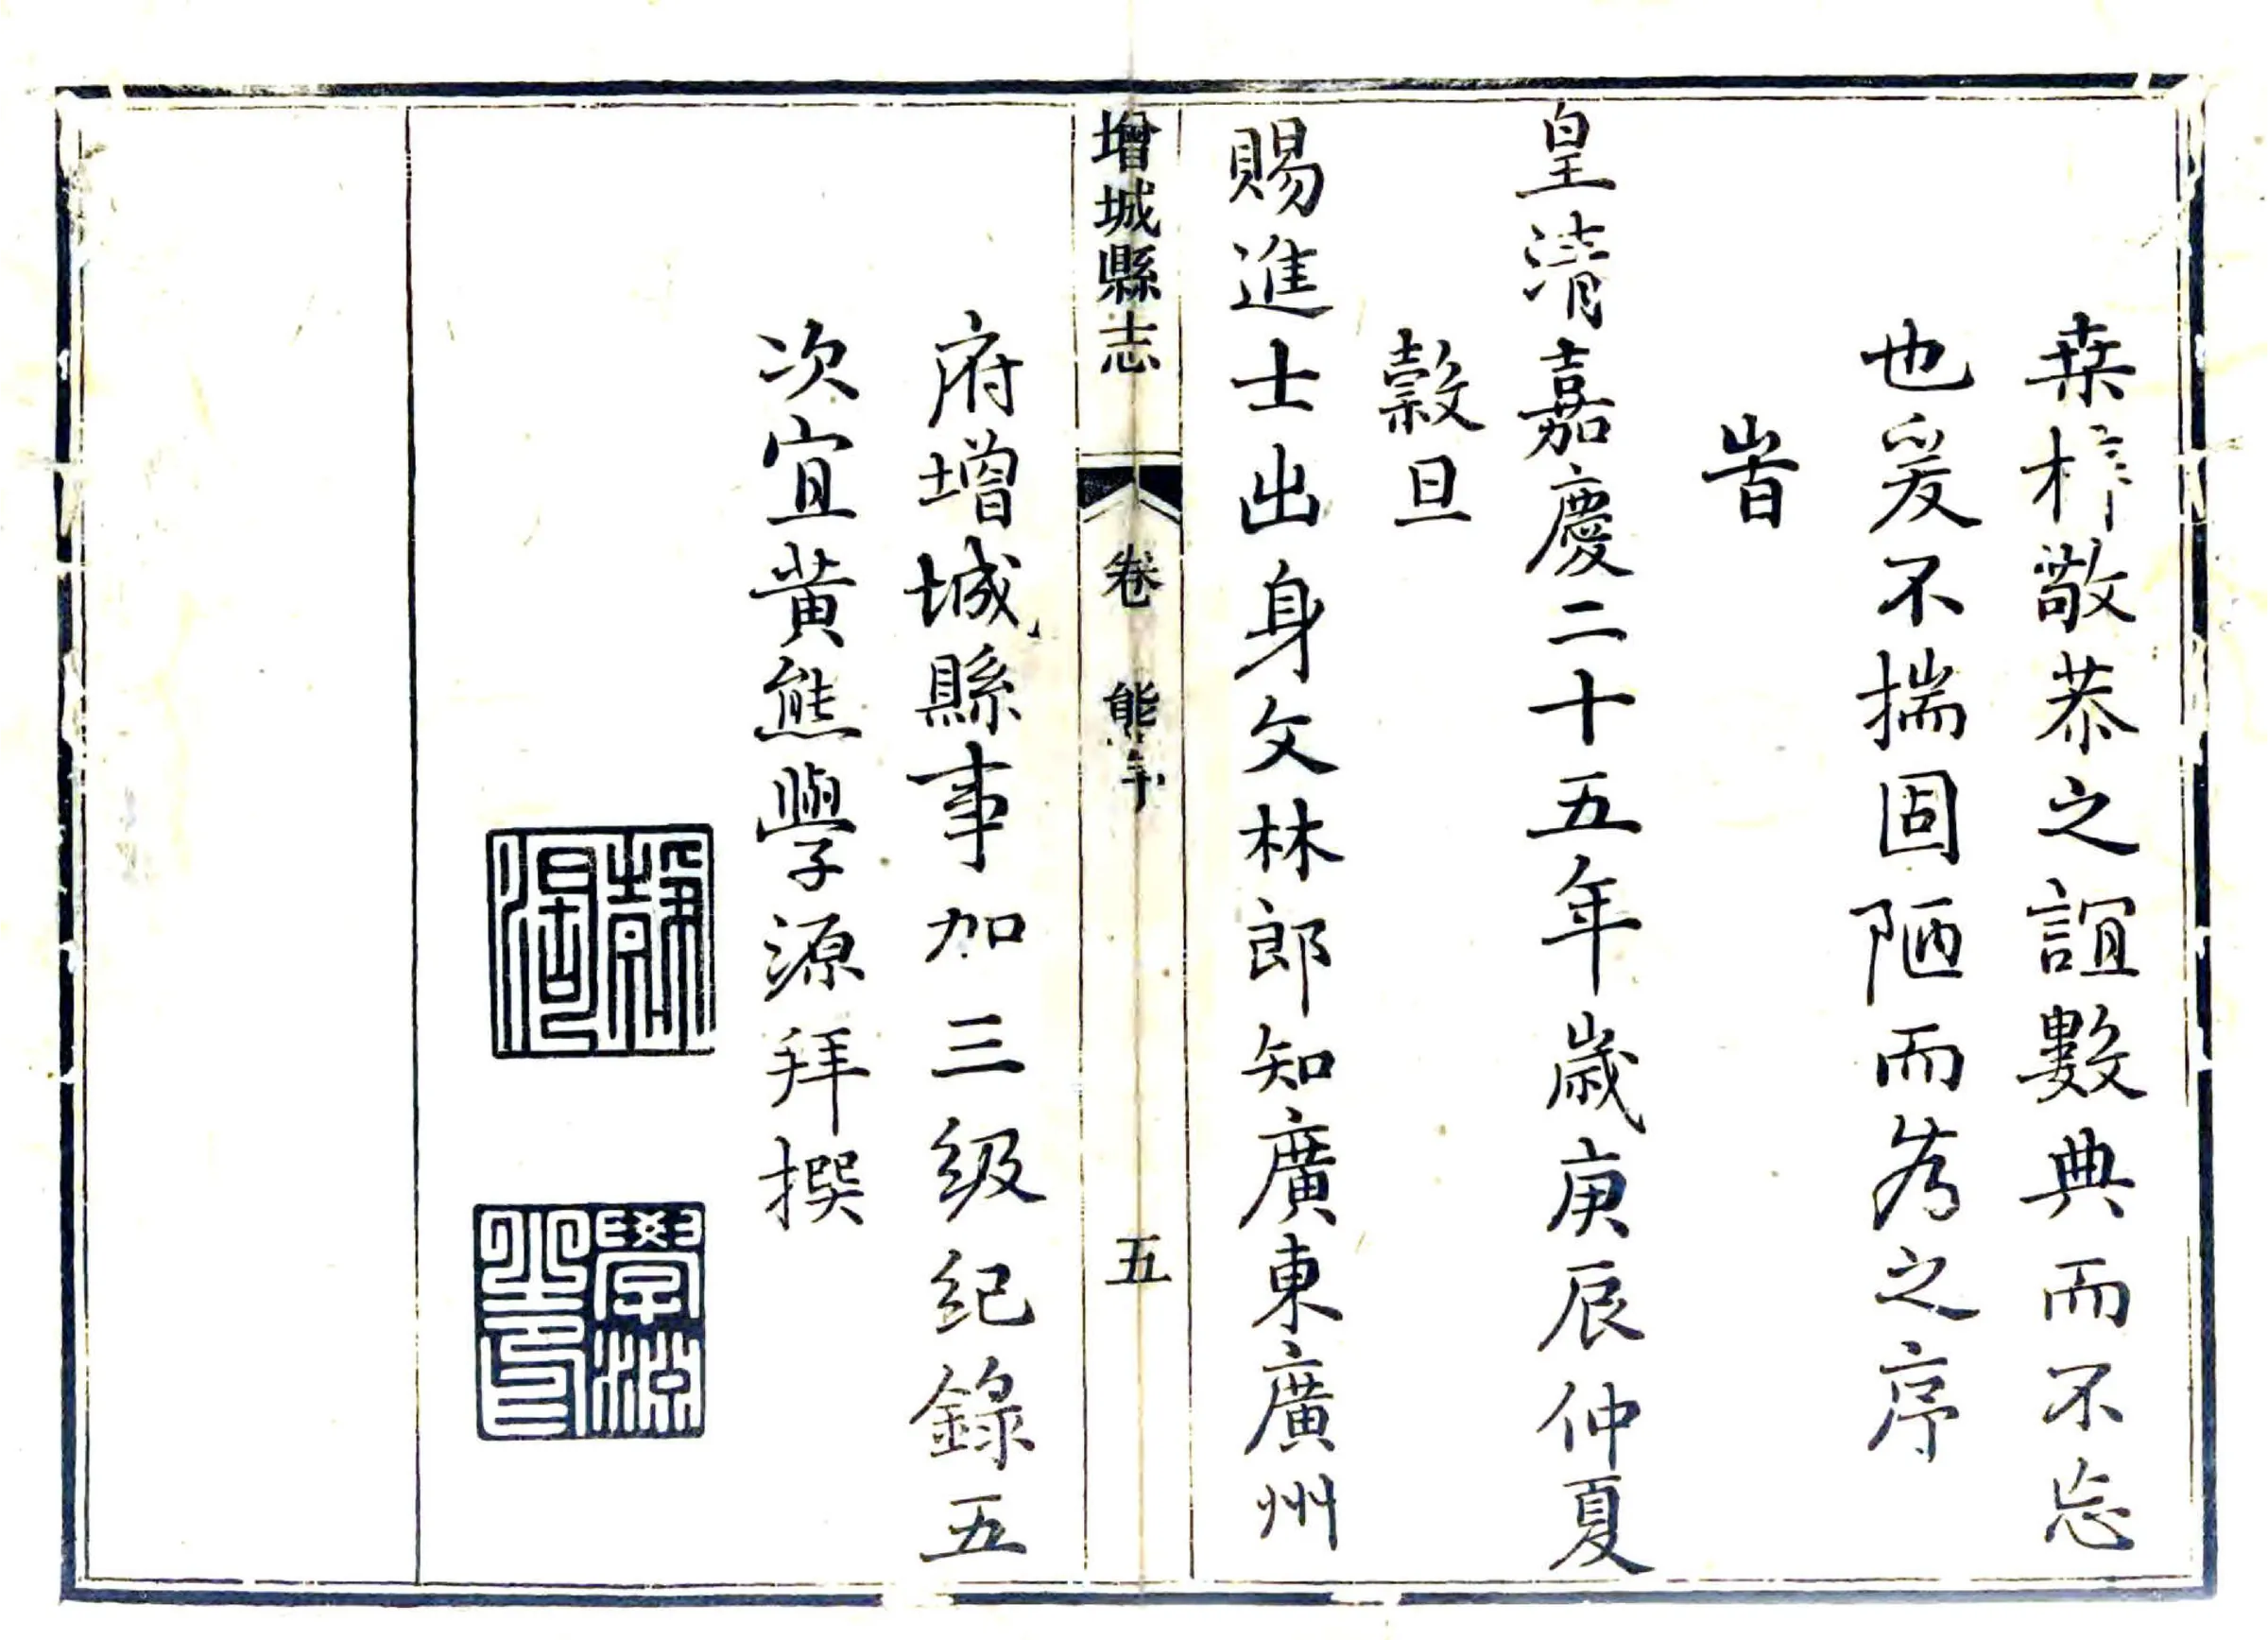 桒梓敬恭之誼數典而不忘
也爰不揣固陋而為之序
旹
皇清嘉慶二十五年歲庚辰仲夏
穀旦
賜進士出身文林郎知廣東廣州
增城縣志
卷
熊序
五
府增城縣事加三級紀錄五
次宜黃熊學源拜撰
學源
之印